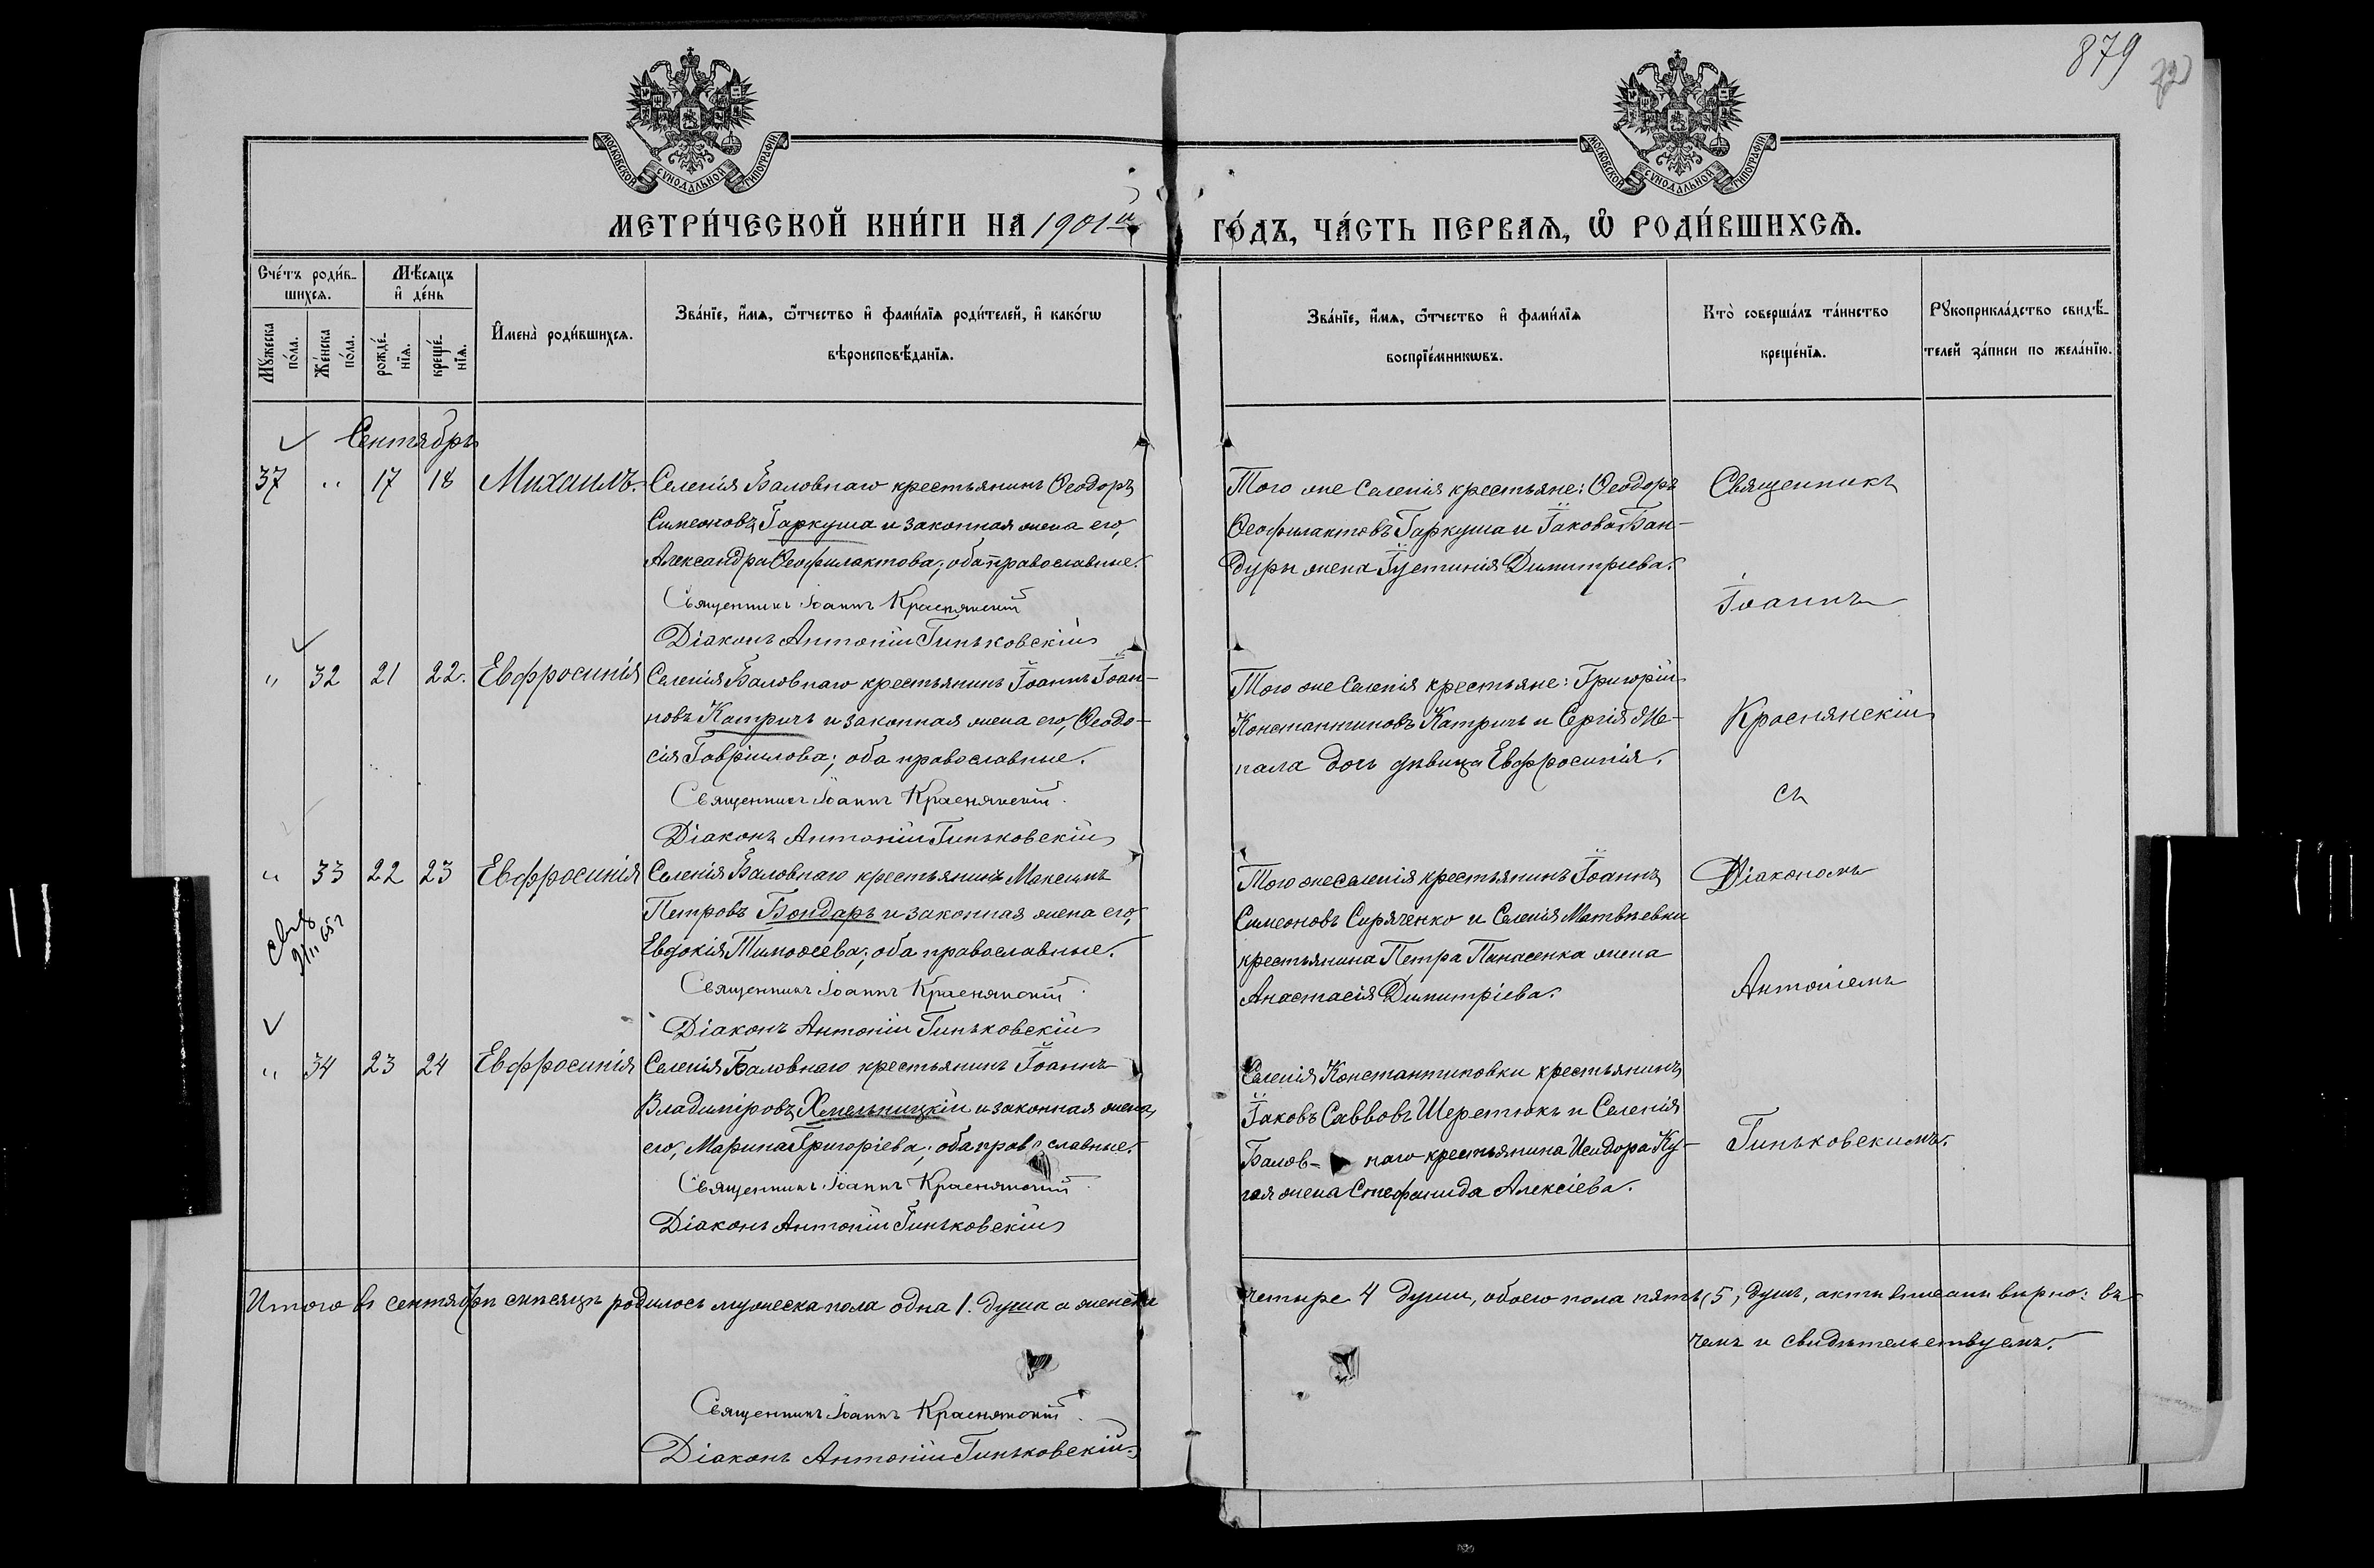 879
72
МОСКОВСКОЙ СѴНОДАЛЬНОЙ ТИПОГРАФІИ.
МОСКОВСКОЙ СѴНОДАЛЬНОЙ ТИПОГРАФІИ.
МЕТРИ́ЧЕСКОЙ КНИ́ГИ НА 1901й ГО́ДЪ, ЧА́СТЬ ПЕРВАѦ, Ѡ҆ РОДИ́ВШИХСѦ.
Сче́тъ роди́в-
шихсѧ.
Мѣ́сѧцъ
и҆ де́нь
Мꙋ́жеска
по́ла.
Же́нска
по́ла.
рожде́-
нїѧ.
креще́-
нїѧ.
И҆мена̀ роди́вшихсѧ.
Зва́нїе, и҆́мѧ, ѻ҆́тчество и҆ фами́лїѧ роди́телей, и҆ како́гѡ
вѣроисповѣ́данїѧ.
Зва́нїе, и҆́мѧ, ѻ҆́тчество и҆ фами́лїѧ
воспрїе́мникѡвъ.
Кто̀ соверша́лъ та́инство
креще́нїѧ.
Рꙋкоприкла́дство свидѣ́-
телей за́писи по жела́нїю.
Сентябрь
37 " 17 18 Михаилъ.
Селенія Баловнаго крестьянинъ Ѳеодоръ
Симеоновъ Гаркуша и законная жена его,
Александра Ѳеофилактова; оба православные.
Священникъ Іоаннъ Краснянскій
Діаконъ Антоній Гиньковскій
Того же селенія крестьяне: Ѳеодоръ
Ѳеофилактовъ Гаркуша и Іакова Бан-
дуры жена Іустинія Димитріева.
" 32 21 22. Евфросинія
Селенія Баловнаго крестьянинъ Іоаннъ Іоан-
новъ Катричъ и законная жена его, Ѳеодо-
сія Гавріилова; оба православные.
Священникъ Іоаннъ Краснянскій.
Діаконъ Антоній Гиньковскій
Того же селенія крестьяне: Григорій
Константиновъ Катричъ и Сергія
пала дочь дѣвица Евфросинія.
" 33 22 23 Евфросинія
Селенія Баловнаго крестьянинъ Максимъ
Петровъ Бондарь и законная жена его,
Евдокія Тимоѳеева; оба православные.
Священникъ Іоаннъ Краснянскій.
Діаконъ Антоній Гиньковскій
Того же селенія крестьянинъ Іоаннъ
Симеоновъ Сиряченко и селенія Матвѣевки
крестьянина Петра Панасенка жена
Анастасія Димитріева.
" 34 23 24 Евфросинія
Селенія Баловнаго крестьянинъ Іоаннъ
Владиміровъ Хмельницкій и законная жена
его, Марина Григоріева; оба православные.
Священникъ Іоаннъ Краснянскій.
Діаконъ Антоній Гиньковскій
Селенія Константиновки крестьянинъ
Іаковъ Саввовъ Шереметюкъ и селенія
Балов- наго крестьянина Исидора Ку-
гая жена Стефанида Алексіева.
Священникъ
Іоаннъ
Краснянскій
съ
Діакономъ
Антоніемъ
Гиньковскимъ.
Итого въ сентябрѣ мѣсяцѣ родилось мужеска пола одна 1. душа а женска четыре 4 души, обоего пола пять (5) душъ, акты вписаны вѣрно: въ
чемъ и свидѣтельствуемъ.
Священникъ Іоаннъ Краснянскій.
Діаконъ Антоній Гиньковскій.